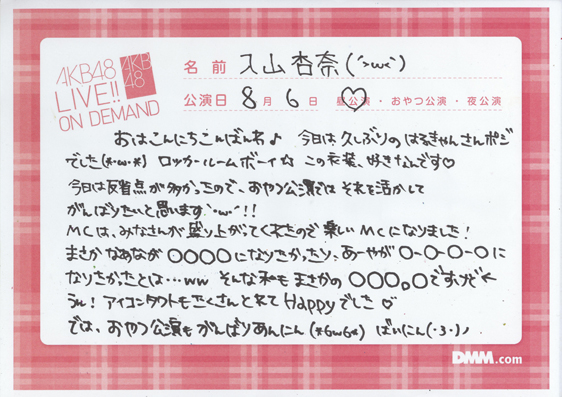 AKB48
LIVE!!
ON DEMAND
AKB
48
名前 入山杏奈(´>ω<`)
公演日 8月 6日 昼公演・おやつ公演・夜公演
おはこんにちこんばんわ♪ 今日は久しぶりのはるきゃんさんポジ
でした(*・ω・*) ロッカールームボーイ☆ この衣装、好きなんです♡
今日は反省点が多かったので、おやつ公演ではそれを活かして
がんばりたいと思います`・ω・´!!
MCは、みなさんが盛り上がってくれたので楽しいMCになりました!
まさかなあなが○○○○になりたかったり、あーやが○-○-○-○に
なりたかったとは…ww そんな私もまさかの○○○。○ですけどく
うれ! アイコンタクトもたくさんとれてHappyでした♡
では、おやつ公演もがんばりあんにん(*6ω6*) ばいにん(・3・)ノ
DMM.com